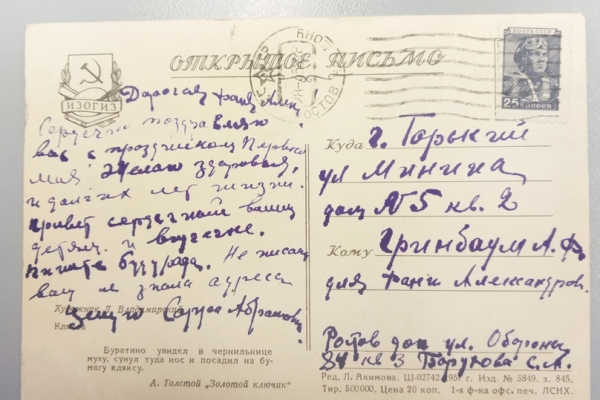 ОТКРЫТОЕ ПИСЬМО
ИЗОГИЗ
ПОЧТА СССР
25 КОПЕЕК
РОСТОВ
Дорогая Фаня Алекс.
Сердечно поздравляю
вас с праздником Первого
мая. Желаю здоровья,
и долгих лет жизни.
привет сердечный вашим
детям. и внучене.
пишите буду рада. Не писала
вам не знала адреса
Целую Сарра Абрамовн
Куда г. Горький
ул Минина
дом №5 кв. 2
Кому Гринбаум А. Ф.
для Фани Александров.
Ростов дон ул. Обороны
84 кв 3 Борухова С. А.
Художник Л. Владимирский
Клякса
Буратино увидел в чернильнице
муху, сунул туда нос и посадил на бу-
магу кляксу.
А. Толстой „Золотой ключик"
Ред. Л. Акимова. Ш-02742 Изд. № 5849. з. 845.
Тир. 500000. Цена 20 коп. 1-я ф-ка офс. печ. ЛСНХ.